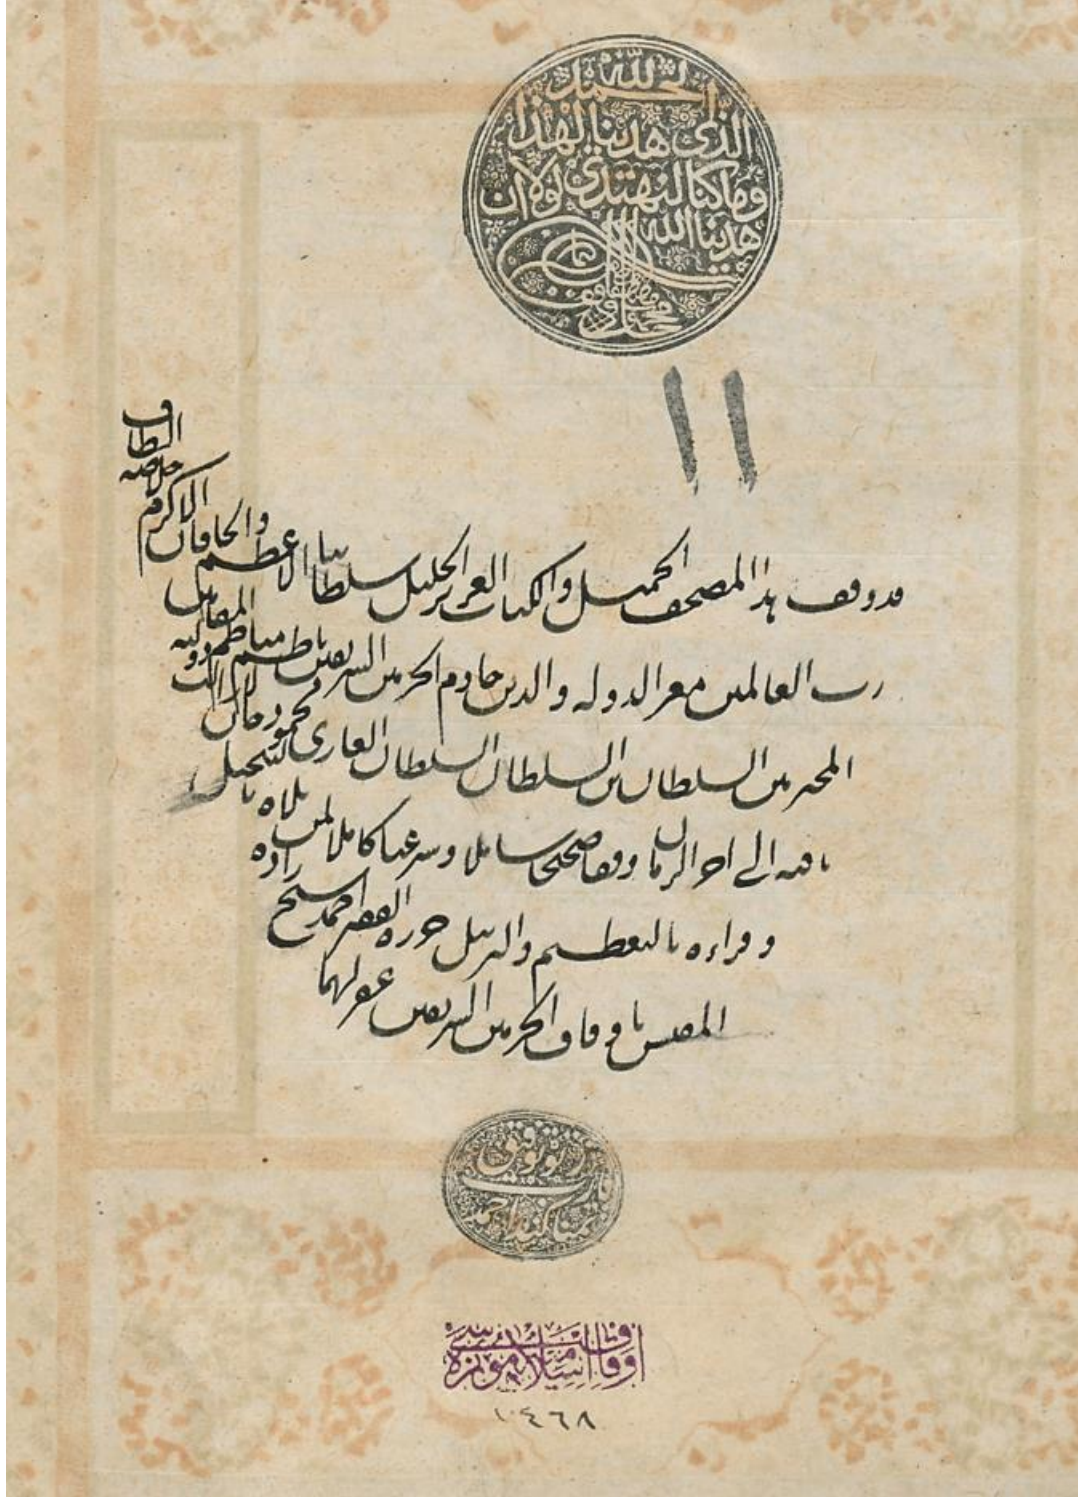 الحمد لله
الذى هدينا لهذا
وما كنا لنهتدي لولا ان
هدينا الله
١١
قد وقف هذا المصحف الجميل والكتاب العزيز الجليل سلطاننا الاعظم والخاقان الاكرم خلاصه الطاف
رب العالمين معز الدوله والدين خادم الحرمين الشريفين ناظم مناظم المقامين
المحترمين السلطان ابن السلطان السلطان الغازى محمود خان لا زالت دولته
باقيه الى اخر الزمان وقفا صحيحا شاملا وشرعيا كاملا لمن تلاه بالتبجيل
وقراءه بالتعظيم والترتيل حرره الفقير احمد شيخ زاده
المفتش باوقاف الحرمين الشريفين غفر لهما
ز تو توفيق
يا رب
تمنا كند احمد
اوقاف اسلاميه موزه سى
١٠٤٦٨